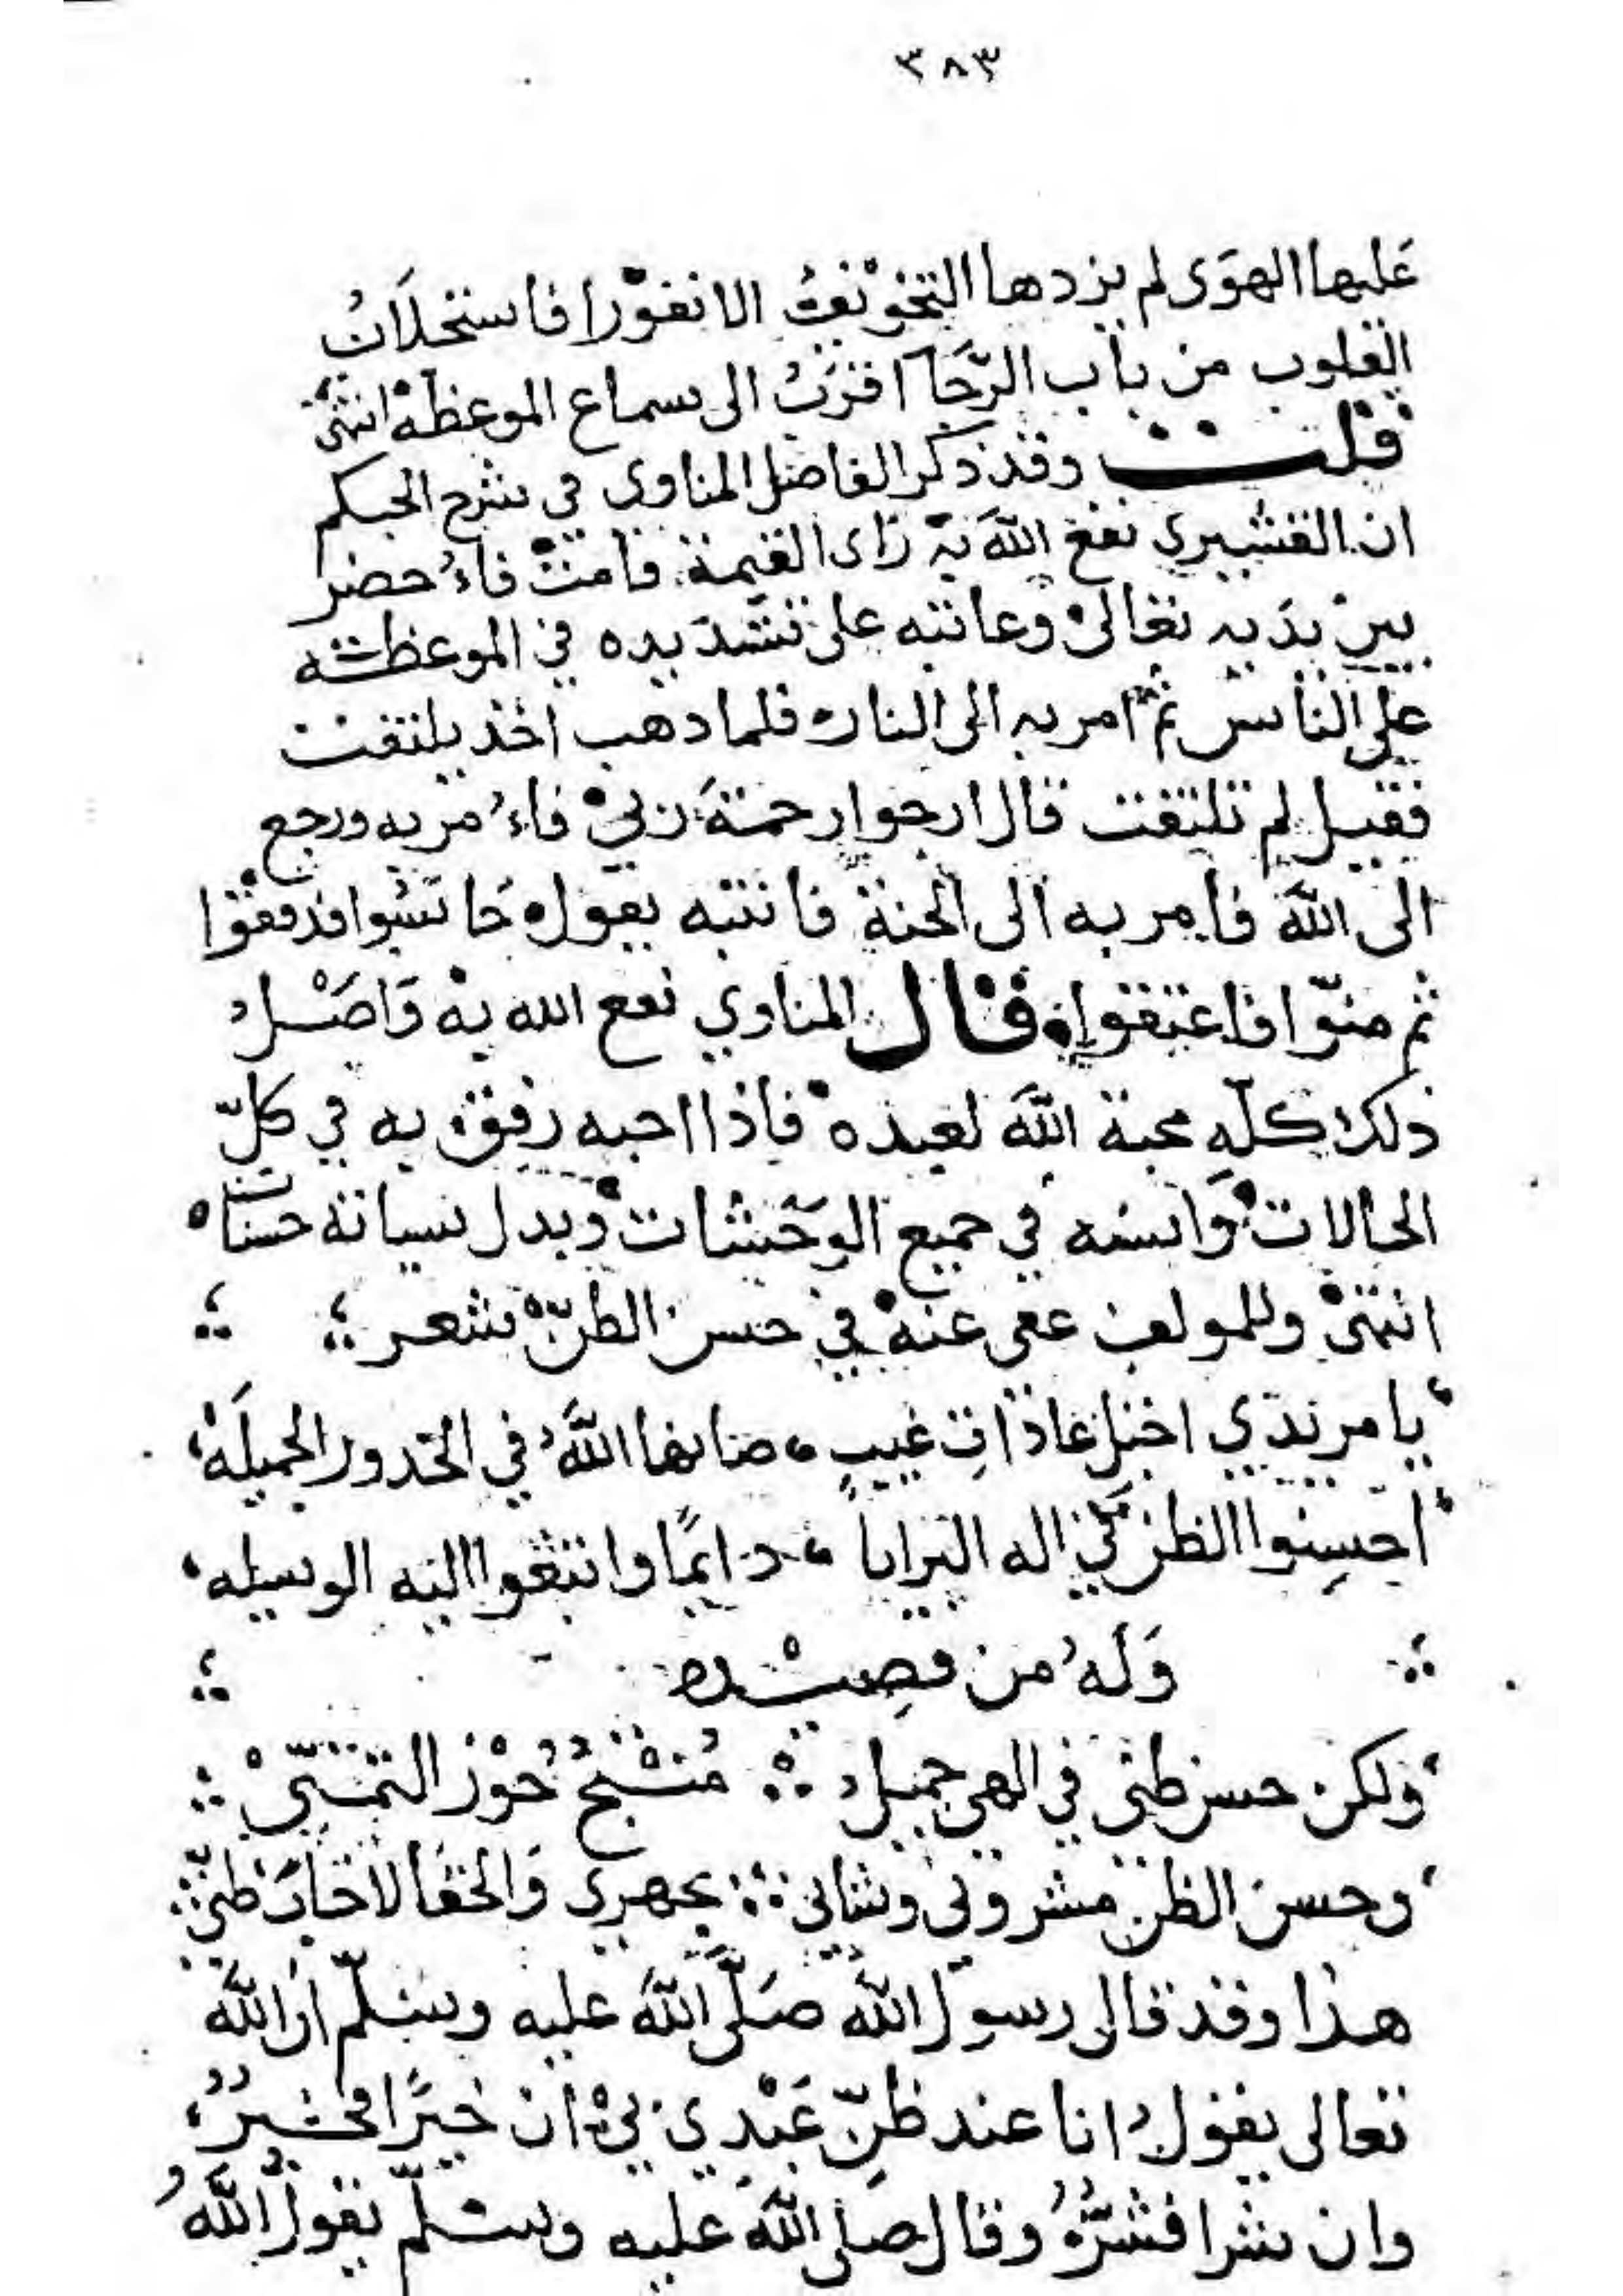 ٣٨٣
عليها الهوى لم يزدها التخويف الا نفورا فاستجلاب
القلوب من باب الرجا اقرب الى سماع الموعظة انتهى
قلت وقد ذكر الفاضل المناوي في شرح الحكم
ان القشيري نفع الله به راى القيمة قامت فاحضر
بين يديه تعالى وعاتبه على تشديده في الموعظة
على الناس ثم امر به الى النار فلما ذهب اخذ يلتفت
فقيل لم تلتفت قال ارجوا رحمة ربي فامر به ورجع
الى الله فامر به الى الجنة فانتبه يقول حاسبوا فدققوا
ثم منّوا فاعتقوا قال المناوي نفع الله به واصل
ذلك كلّه محبة الله لعبده فاذا احبه رفق به في كلّ
الحالات وانسه في جميع الوحشات وبدل سياته حسنات
انتهى وللمولف عفى عنه في حسن الظنّ شعر
يا مريدي اجتلي غاذات غيب صانها الله في الخدور الجميله
احسنوا الظن في اله البرايا دايمًا وابتغوا اليه الوسيله
وله من قصيده
ولكن حسن ظني في الهي جميل منتج حوز التمنّي
وحسن الظن مشروبي وشاني بجهري والخفا لا خاب ظنّي
هذا وقد قال رسول الله صلّى الله عليه وسلّم ان الله
تعالى يقول انا عند ظنّ عبدي بي ان خيرًا فخير
وان شرا فشرّ وقال صلى الله عليه وسلّم يقول الله